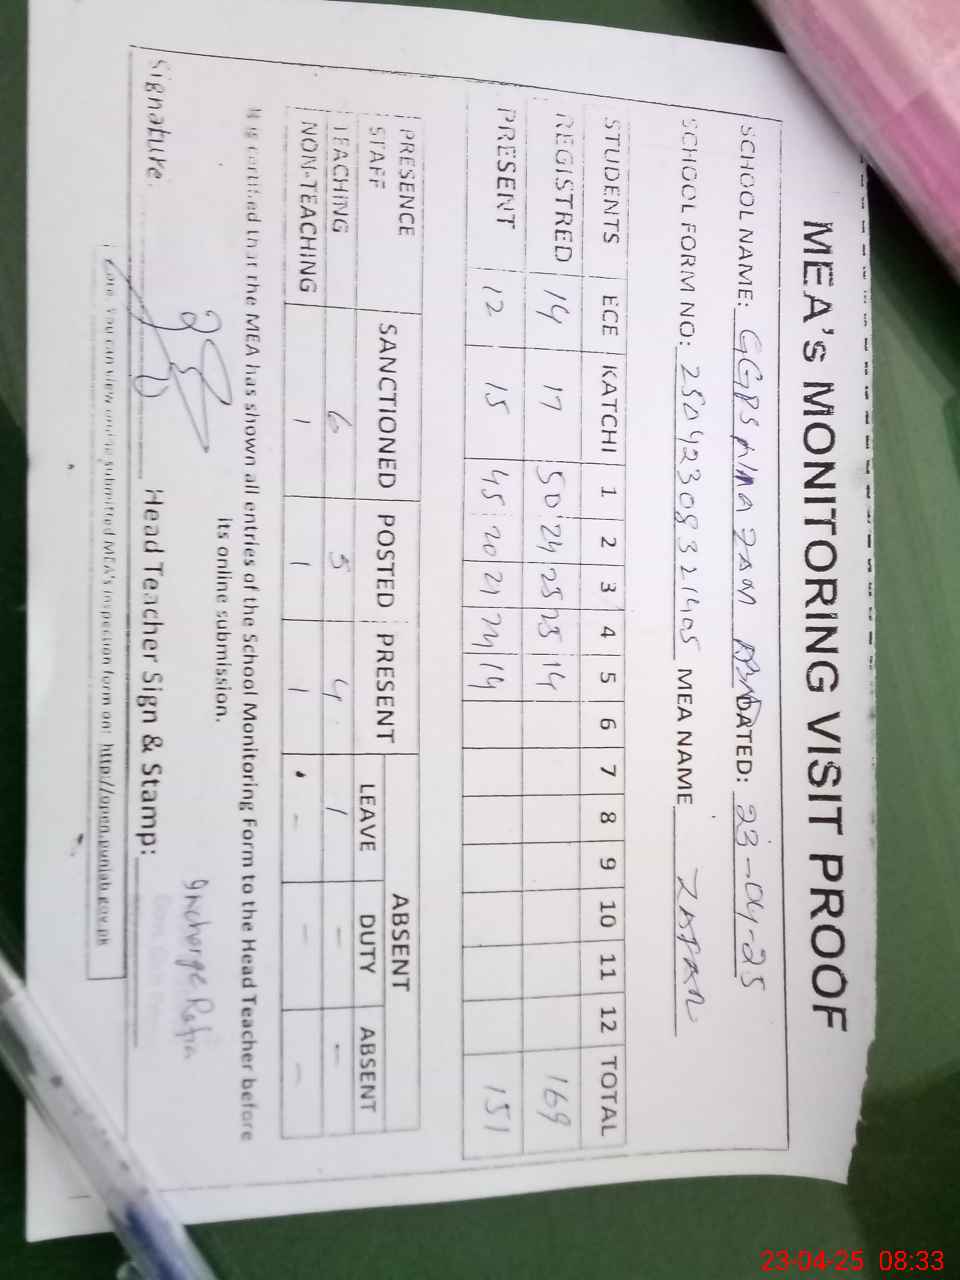 MEA's MONITORING VISIT PROOF
SCHOOL NAME: GGPS DATED: 23-04-25
SCHOOL FORM NO: MEA NAME ZAFAR
STUDENTS ECE KATCHI 1 2 3 4 5 6 7 8 9 10 11 12 TOTAL
REGISTRED 14 17 50 24 25 25 14 169
PRESENT 12 15 45 20 21 24 14 151
PRESENCE STAFF SANCTIONED POSTED PRESENT ABSENT
LEAVE DUTY ABSENT
TEACHING 6 5 4 1 - -
NON-TEACHING 1 1 1 - - -
certified that the MEA has shown all entries of the School Monitoring Form to the Head Teacher before
its online submission.
Incharge Rafia
Signature: Head Teacher Sign & Stamp:
You can view online submitted MEA's inspection form on: http://open.punjab.gov.pk
23-04-25 08:33